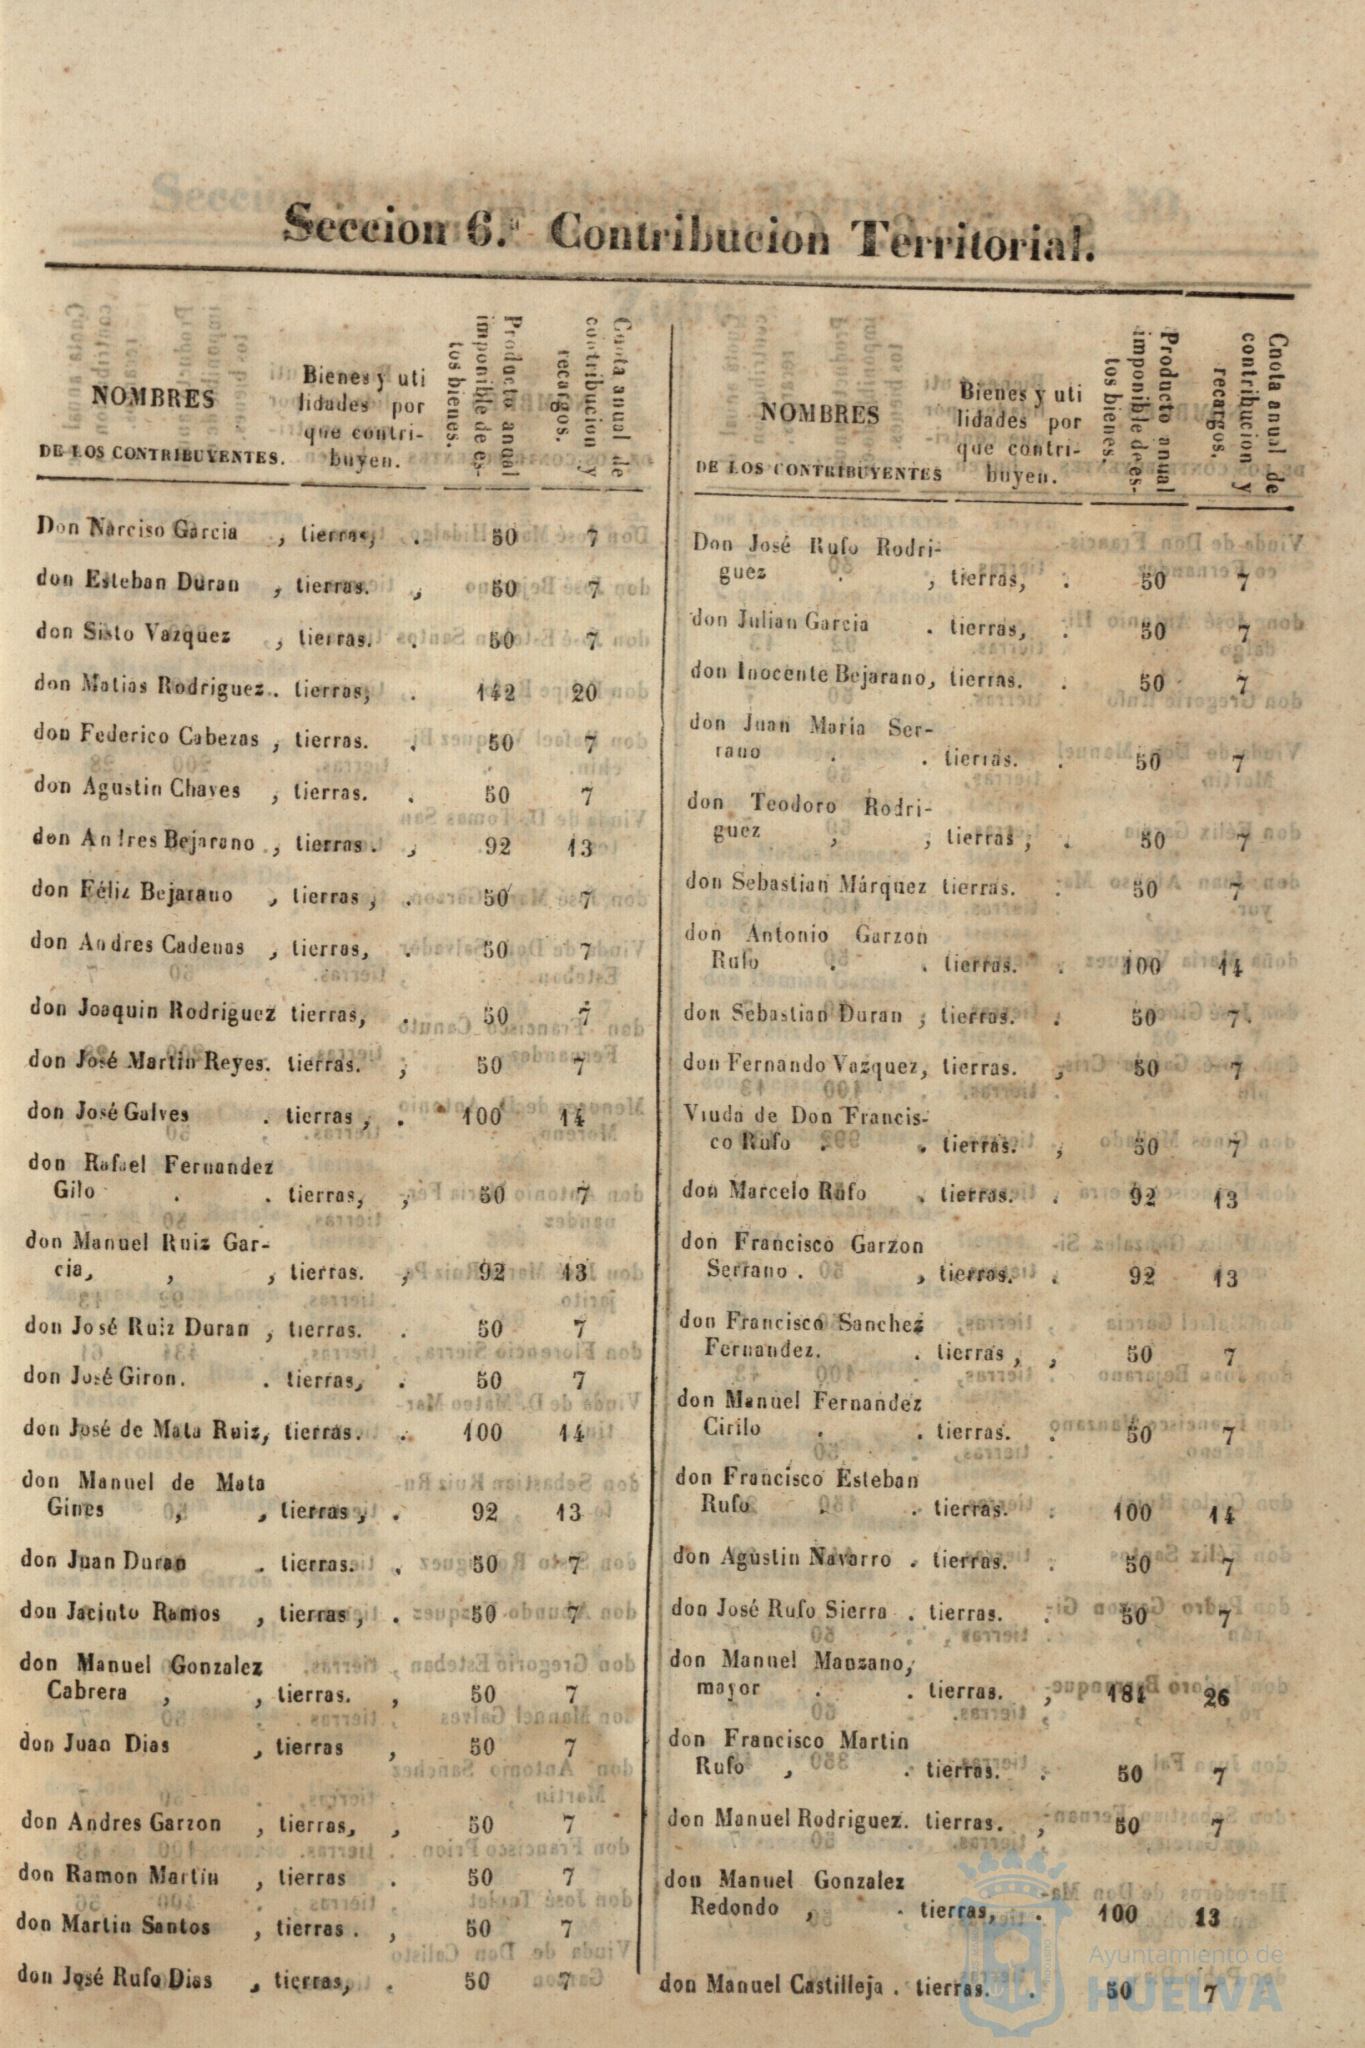 Seccion 6.ª Contribucion Territorial.
NOMBRES
DE LOS CONTRIBUYENTES.
Bienes y uti
lidades por
que contri-
buyen.
Producto anual
imponible de es-
tos bienes.
Cuota anual de
contribucion y
recargos.
Don Narciso Garcia , tierras, . 50 7
don Esteban Duran , tierras. , 50 7
don Sisto Vazquez , tierras. . 50 7
don Matias Rodriguez . tierras, . 142 20
don Federico Cabezas , tierras. . 50 7
don Agustin Chaves , tierras. . 50 7
don Andres Bejarano , tierras . , 92 13
don Féliz Bejarano , tierras , . 50 7
don Andres Cadenas , tierras, . 50 7
don Joaquin Rodriguez tierras, . 50 7
don José Martin Reyes. tierras. , 50 7
don José Galves . tierras , . 100 14
don Rafael Fernandez
Gilo . . tierras, , 50 7
don Manuel Ruiz Gar-
cia, , , tierras. , 92 13
don José Ruiz Duran , tierras. . 50 7
don José Giron. . tierras, . 50 7
don José de Mata Ruiz, tierras. . 100 14
don Manuel de Mata
Gines , , tierras , . 92 13
don Juan Duran . tierras. . 50 7
don Jacinto Ramos , tierras , . 50 7
don Manuel Gonzalez
Cabrera , , tierras. , 50 7
don Juan Dias , tierras , 50 7
don Andres Garzon , tierras, , 50 7
don Ramon Martin , tierras . 50 7
don Martin Santos , tierras . , 50 7
don José Rufo Dias , tierras, . 50 7
NOMBRES
DE LOS CONTRIBUYENTES
Bienes y uti
lidades por
que contri-
buyen.
Producto anual
imponible de es-
tos bienes.
Cnota anual de
contribucion y
recargos.
Don José Rufo Rodri-
guez . , tierras, . 50 7
don Julian Garcia . tierras, . 50 7
don Inocente Bejarano, tierras. . 50 7
don Juan Maria Ser-
rano . . tierras. . 50 7
don Teodoro Rodri-
guez , , tierras , . 50 7
don Sebastian Márquez tierras. . 50 7
don Antonio Garzon
Rufo . . tierras. . 100 14
don Sebastian Duran , tierras. . 50 7
don Fernando Vazquez, tierras. , 50 7
Viuda de Don Francis-
co Rufo . . tierras. , 50 7
don Marcelo Rufo . tierras. . 92 13
don Francisco Garzon
Serrano . , tierras. . 92 13
don Francisco Sanchez
Fernandez. . tierras , , 50 7
don Manuel Fernandez
Cirilo . . tierras. . 50 7
don Francisco Esteban
Rufo . . tierras. . 100 14
don Agustin Navarro . tierras. . 50 7
don José Rufo Sierra . tierras. . 50 7
don Manuel Manzano,
mayor . . tierras. , 184 26
don Francisco Martin
Rufo , . tierras. . 50 7
don Manuel Rodriguez. tierras. , 50 7
don Manuel Gonzalez
Redondo , . tierras, . 100 13
don Manuel Castilleja . tierras. . 50 7
Ayuntamiento de
HUELVA